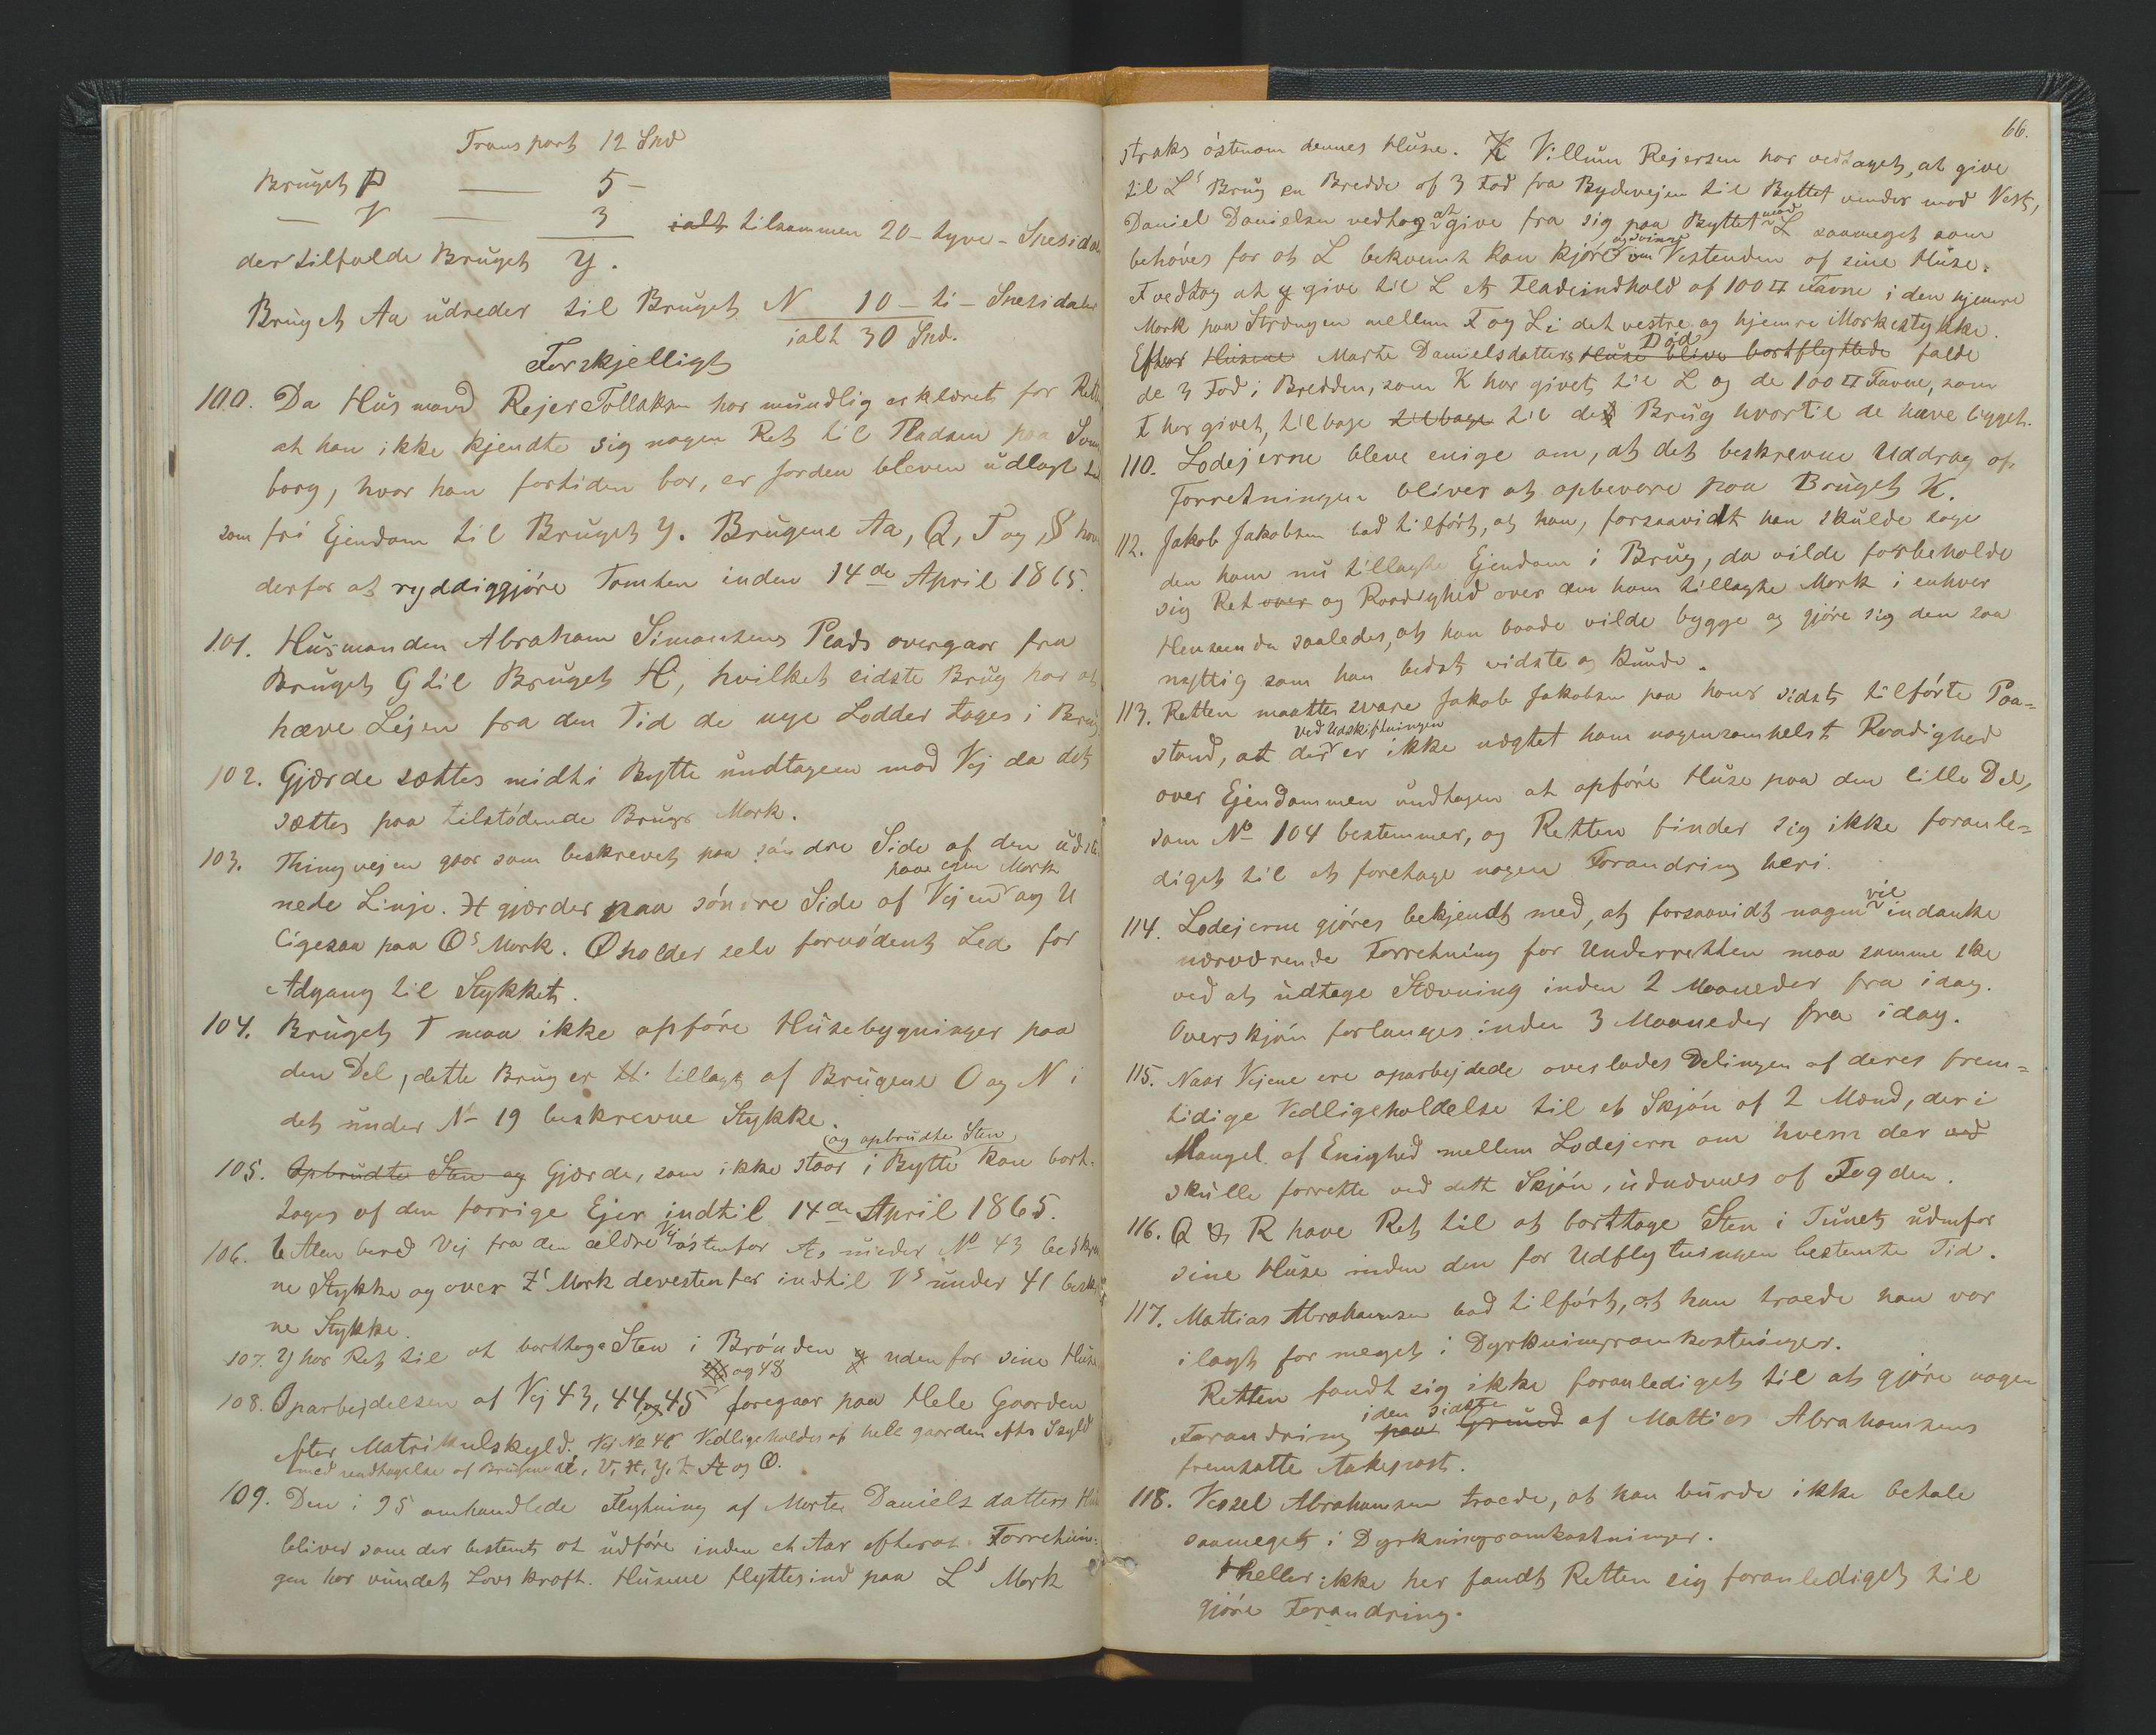 Transport 12 Spd
Bruget P — 5 –
— V — 3
ialt tilsammen 20 - tyve - Spesidaler
der tilfalde Bruget Y.
Bruget Aa udreder til Bruget N 10 - ti - Spesidaler
ialt 30 Spd.
Forskjelligt
100. Da Husmand Rejer Tollaksen har mundlig erklæret for Retten
at han ikke kjendte sig nogen Ret til Pladsen paa
borg, hvor han fortiden bor, er Jorden bleven udlagt
som fri Ejendom til Bruget Y. Brugene Aa, Q, T og S har
derfor at ryddiggjöre Tomten inden 14de April 1865.
101. Husmanden Abraham Simonsens Plads overgaar fra
Bruget G til Bruget H, hvilket sidste Brug har at
hæve Lejen fra den Tid de nye Lodder tages i Brug
102. Gjærde sættes midt i Bytte undtagen mod Vej da det
sættes paa tilstödende Brugs Mark.
103. Thingvejen gaar som beskrevet paa söndre Side af den udstu-
paa egen Mark
nede Linje. H gjærder paa söndre Side af Vejen og U
ligesaa paa Os Mark. O holder selv fornödent Led for
Adgang til Stykket.
104. Bruget T maa ikke opföre Husebygninger paa
den Del, dette Brug er ti tillagt af Brugene O og N i
det under No 19 beskrevne Stykke.
og opbrudte Sten
105. Opbrudte Sten og Gjærde, som ikke staar i Bytte kan bort-
tages af den forrige Ejer indtil 14de April 1865.
106. 6 Alen bred Vej fra den ældre Vej östenfor As under No 43 beskrev
ne Stykke og over Zs Mark devestenfor indtil Vs under 41 beskrev
ne Stykke.
107. Y har Ret til at borttage Sten i Brönden y uden for sine Huse
og 48
108. Oparbejdelsen af Vej 43, 44, og 45 foregaar paa Hele Gaarden
efter Matrikulskyld. Vej No 46 Vedligeholdes af hele gaarden efter Skyld
med undtagelse af Brugene U, V, H, Y, Z A og O.
109. Den i 95 omhandlede Flytning af Marte Danielsdatters Huse
bliver som der bestemt at udföre inden et Aar efterat Forretnin-
gen har vundet Lovskraft. Husene flyttes ind paa Ls Mark
66.
straks östenom dennes Huse. K Villum Rejersen har vedtaget, at give
til Ls Brug en Bredde af 3 Fod fra Bydevejen til Byttet vender mod Vest,
Daniel Danielsen vedtog at give fra sig paa Byttet mod L saameget som
behöves for at L bekvemt kan kjöre og svinge om Vestenden af sine Huse.
T vedtog at y give til L et Fladeindhold af 100 □ Favne i den hjemre
Mark paa Strængen mellem T og L i det vestre og hjemre Markestykke.
Död
Efter Husene Marte Danielsdatters Huse blive bortflyttede falde
de 3 Fod i Bredden, som K har givet til L og de 100 □ Favne, som
T har givet, tilbage tilbage til det Brug hvortil de have ligget.
110. Lodejerne bleve enige om, at det beskrevne Uddrag af
Forretningen bliver at opbevare paa Bruget K.
112. Jakob Jakobsen bad tilfört, at han, forsaavidt han skulde tage
den ham nu tillagte Ejendom i Brug, da vilde forbeholde
sig Ret over og Raadighed over den ham tillagte Mark i enhver
Henseende saaledes, at han baade vilde bygge og gjöre sig den saa
nyttig som han bedst vidste og kunde.
113. Retten maatte svare Jakob Jakobsen paa hans sidst tilförte Paa-
ved Udskiftningen
stand, at der er ikke nægtet ham nogensomhelst Raadighed
over Ejendommen undtagen at opföre Huse paa den lille Del,
som No 104 bestemmer, og Retten finder sig ikke foranle-
diget til at foretage nogen Forandring heri.
114. Lodejerne gjöres bekjendt med, at forsaavidt nogen vil indanke
nærværende Forretning for Underretten maa samme ske
ved at udtage Stævning inden 2 Maaneder fra idag.
Overskjön forlanges inden 3 Maaneder fra idag.
115. Naar Vejene ere oparbejdede overlades Delingen af deres frem-
tidige Vedligeholdelse til et Skjön af 2 Mænd, der i
Mangel af Enighed mellem Lodejern om hvem der ved
skulle forrette ved dette Skjön, udnævnes af Fogden.
116. Q og R have Ret til at borttage Sten i Tunet udenfor
sine Huse inden den for Udflytningen bestemte Tid.
117. Mattias Abrahamsen bad tilfört, at han troede han var
ilagt for meget i Dyrkningsomkostninger.
Retten fandt sig ikke foranlediget til at gjöre nogen
i den sidste
Forandring paa Grund af Mattias Abrahamsens
fremsatte Ankepost.
118. Vessel Abrahamsen troede, at han burde ikke betale
saameget i Dyrkningsomkostninger.
Heller ikke her fandt Retten sig foranlediget til
gjöre Forandring.